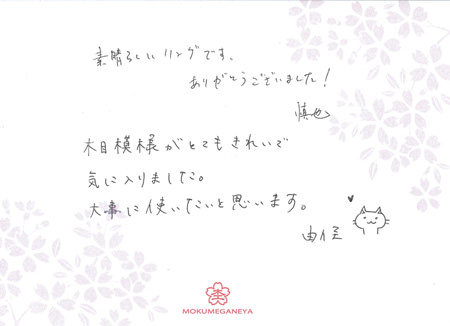 素晴らしいリングです。
ありがとうございました!
慎也
木目模様がとてもきれいで
気に入りました。
大事に使いたいと思います。
由佳
MOKUMEGANEYA